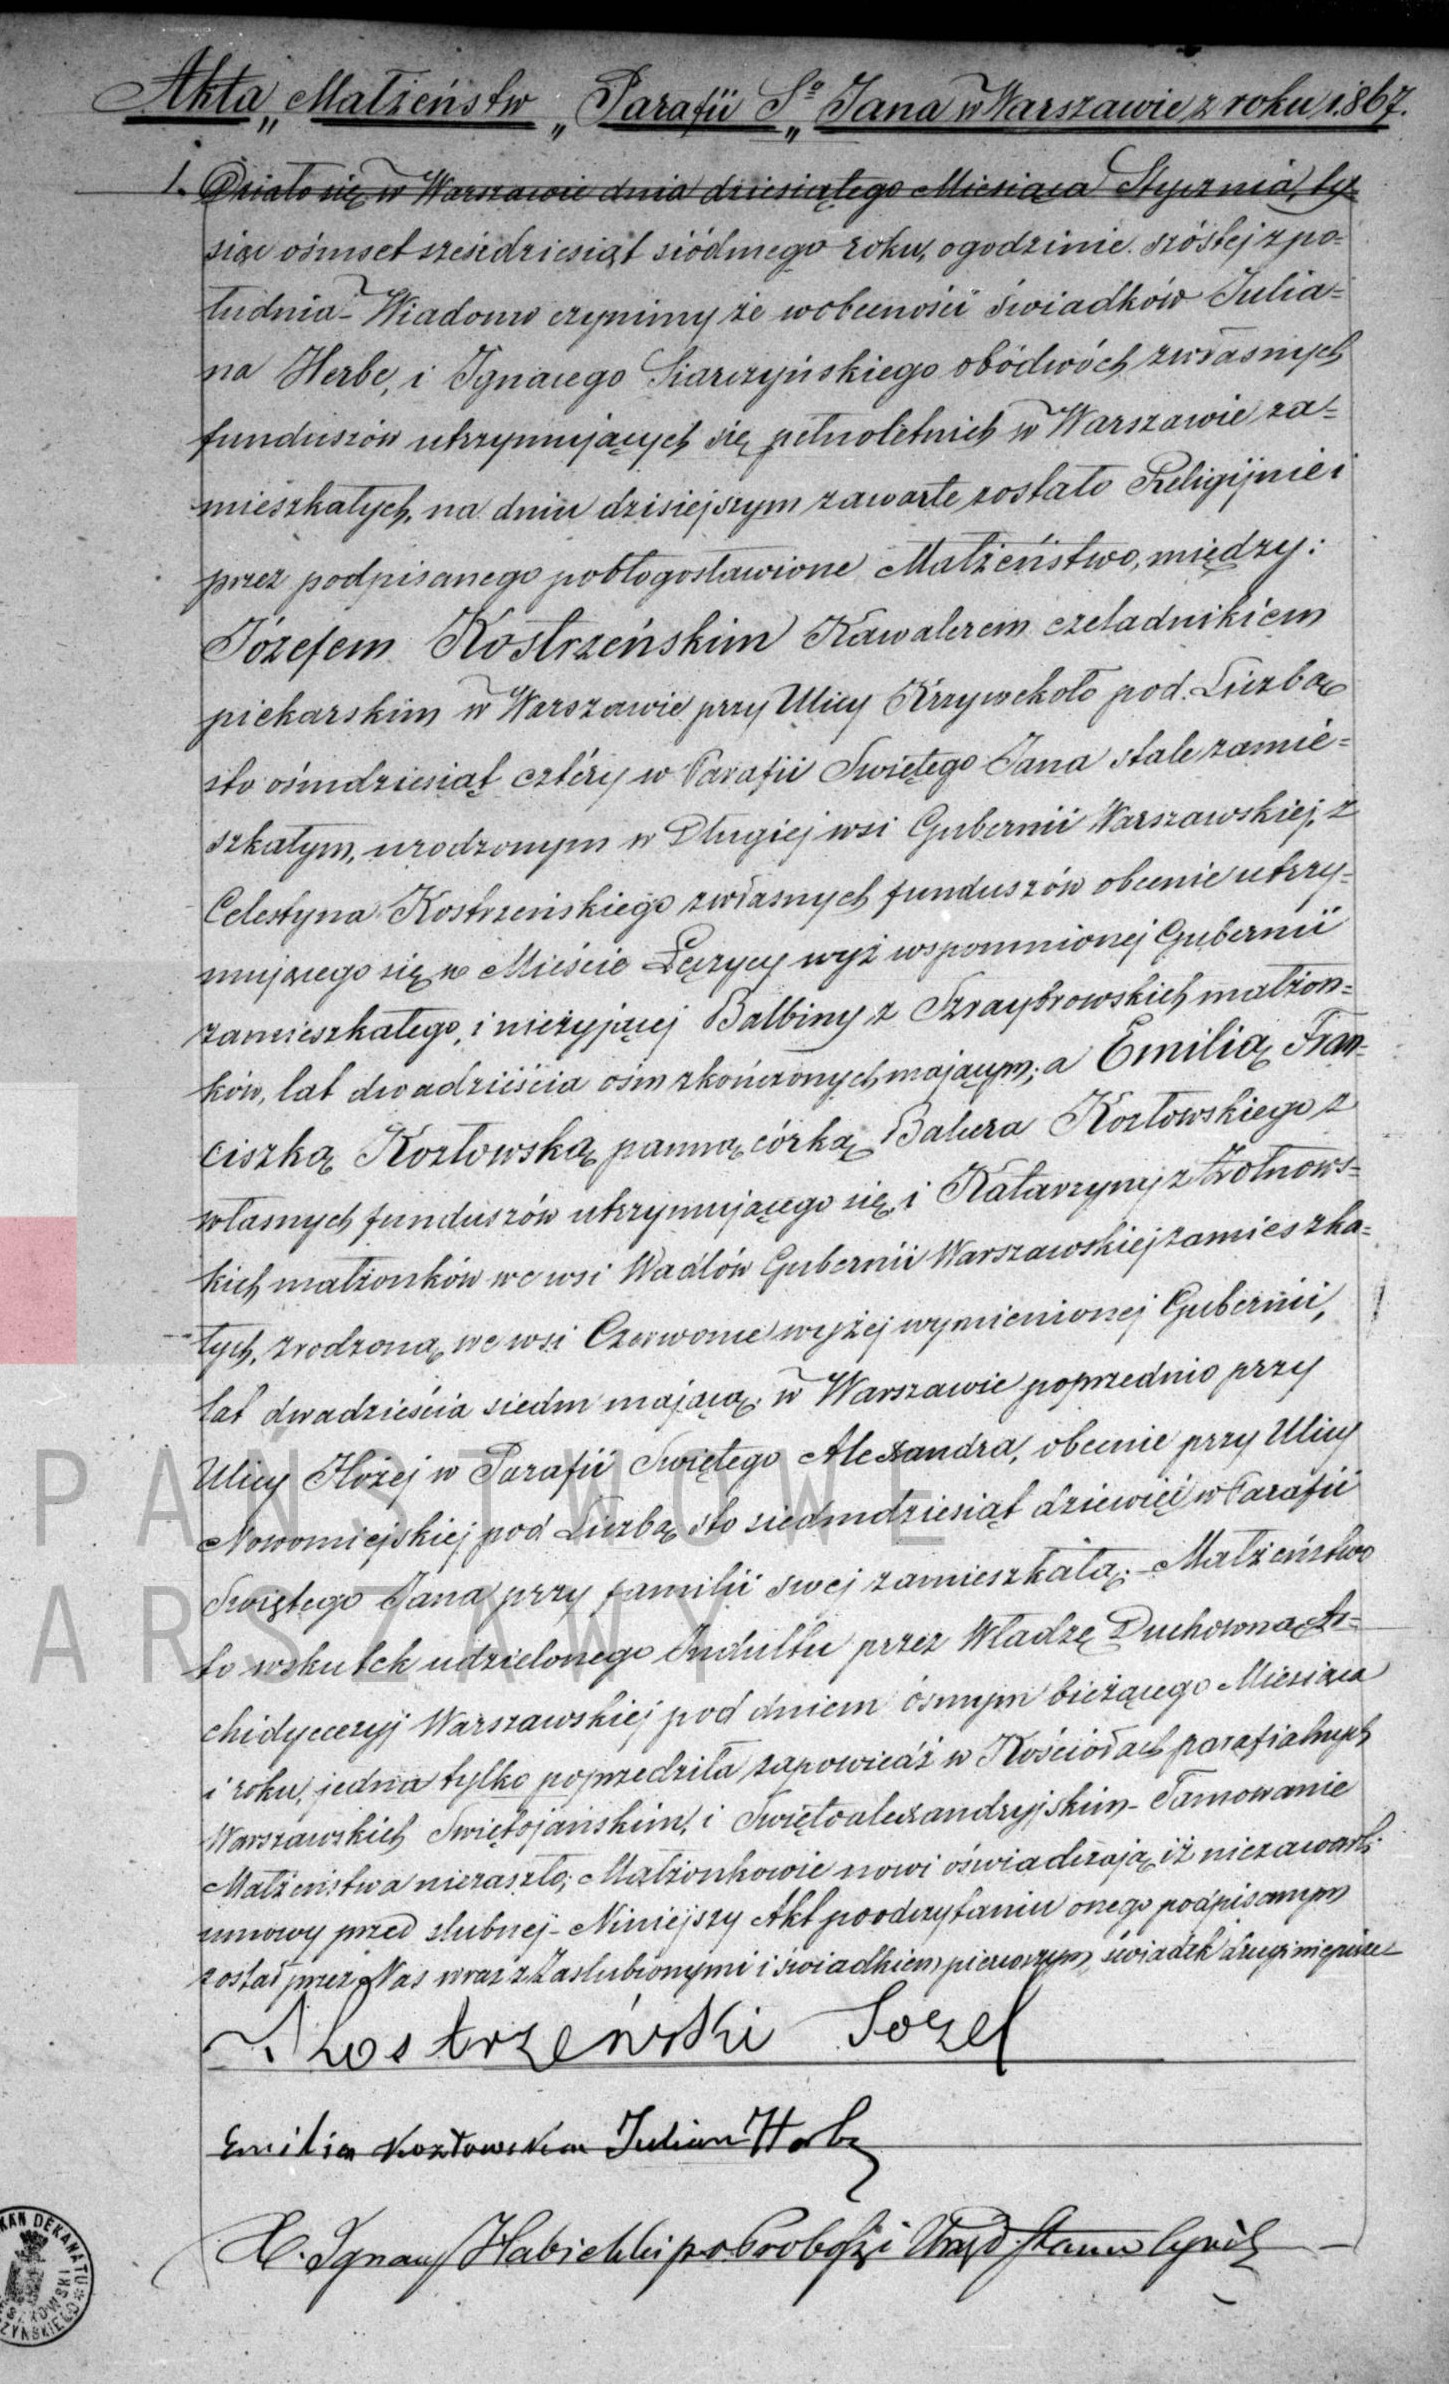 Akta „ Małżeństw „ Parafii Sº „ Jana w Warszawie z roku 1867.
1. Działo się w Warszawie dnia dziesiątego Miesiąca Stycznia, ty=
siąc ośmset sześćdziesiąt siódmego roku, o godzinie szóstej z po=
łudnia – Wiadomo czynimy że w obecności świadków Julia=
na Herbe, i Ignacego Siarczyńskiego obódwóch z własnych
funduszów utrzymujących się pełnoletnich w Warszawie za=
mieszkałych, na dniu dzisiejszym zawarte zostało Religijnie i
przez podpisanego pobłogosławione Małżeństwo, między:
Józefem Kostrzeńskim Kawalerem czeladnikiem
piekarskim w Warszawie przy Ulicy Krzywekoło pod Liczbą
sto ośmdziesiąt cztéry w Parafii Swiętego Jana stale zamie=
szkałym, urodzonym w Długiej wsi Gubernii Warszawskiej, z
Celestyna Kostrzeńskiego z własnych funduszów obecnie utrzy=
mującego się w Mieście Łęczycy wyż wspomnionej Gubernii
zamieszkałego, i nieżyjącej Balbiny z małżon=
ków, lat dwadzieścia ośm skończonych mającym; a Emilią Fran=
ciszką Kozłowską panną córką Kozłowskiego z
własnych funduszów utrzymującego się i Katarzyny z
kich małżonków we wsi Wadłów Gubernii Warszawskiej zamieszka=
łych, zrodzoną we wsi Czerwonie wyżej wymienionej Gubernii,
lat dwadzieścia siedm mającą; w Warszawie poprzednio przy
Ulicy Hożej w Parafii Swiętego Alexandra, obecnie przy Ulicy
Nowomiejskiej pod Liczbą sto siedmdziesiąt dziewięć w Parafii
Swiętego Jana przy familii swej zamieszkałą; – Małżeństwo
to wskutek udzielonego Indultu przez Władzę Duchowną Ar=
chidyecezyj Warszawskiej pod dniem ósmym bieżącego Miesiąca
i roku, jedna tylko poprzedziła zapowiedź w Kościołach parafialnych
Warszawskich Swiętojańskim, i Swiętoalexandryjskim – Tamowanie
Małżeństwa niezaszło; Małżonkowie nowi oświadczają iż niezawarli
umowy przed slubnej – Niniejszy Akt po odczytaniu onego podpisanym
został przez Nas wraz z Zaslubionymi i świadkiem pierwszym, świadek drugi niepisze
Kostrzeński Jozef
Emilia Kozłowska Julian Herbe
X. Ignacy p o Proboszcz i Urzęd. Stanu Cywil
PAŃSTWOWE
ARSZAWY